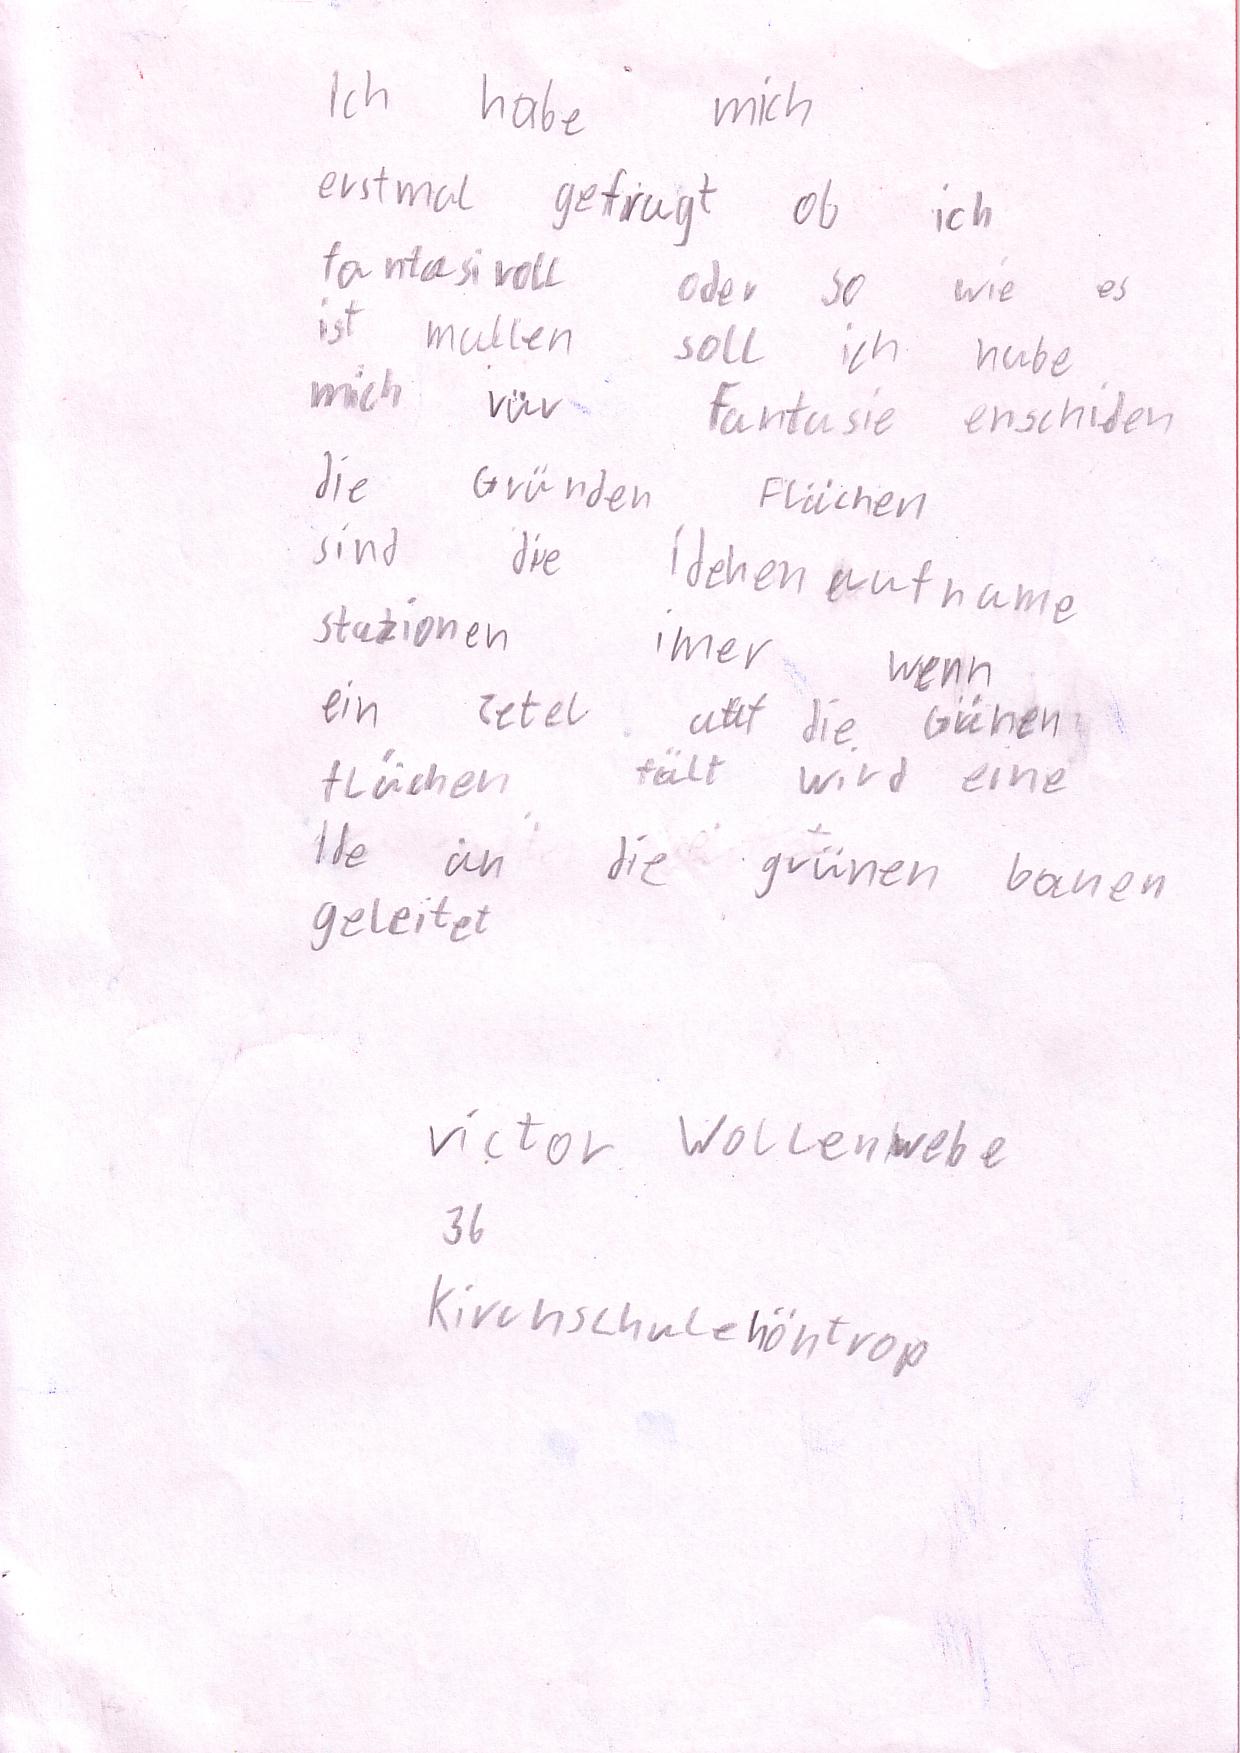 Ich habe mich
erstmal gefragt ob ich
fantasivoll oder so wie es
ist mallen soll ich habe
mich vür Fantasie enschiden
die Gründen Flächen
sind die Idehenaufname
stazionen imer wenn
ein zetel auf die Günen
flächen fält wird eine
Ide an die grünen banen
geleitet
victor Wollenwebe
36
Kirchschulehöntrop